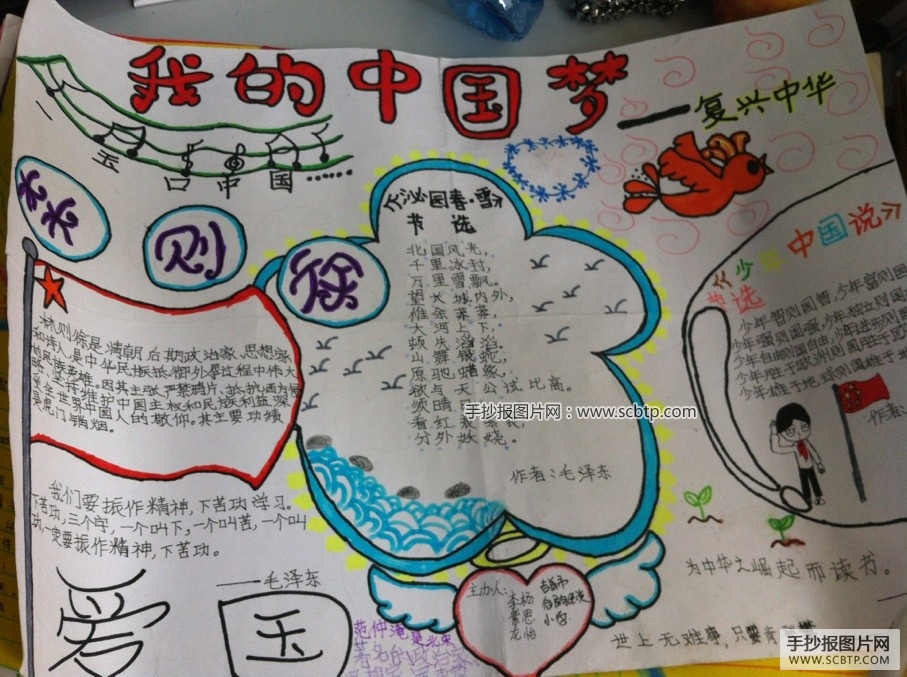 我的中国梦
——复兴中华
玉口中国……
林则徐
《沁园春·雪》
节选
北国风光,
千里冰封,
万里雪飘。
望长城内外,
惟余莽莽,
大河上下,
顿失滔滔。
山舞银蛇,
原驰蜡象,
欲与天公试比高。
须晴
看红装素裹,
分外妖娆。
作者:毛泽东
林则徐是清朝后期政治家、思想家
和诗人,是中华民族抵御外辱过程中伟大
的民族英雄。因其主张严禁鸦片、抵抗西方侵
略、坚持维护中国主权和民族利益深
受全世界中国人的敬仰。其主要功绩
是虎门销烟。
我们要振作精神,下苦功学习。
下苦功,三个字,一个叫下,一个叫苦,一个叫
功,一定要振作精神,下苦功。
——毛泽东
爱国
《少年中国说》
节选
少年智则国智,少年富则国
少年强则国强,少年独立则国
少年自由则国自由,少年进步则国
少年胜于欧洲则国胜于欧
少年雄于地球则国雄于地
作者:
为中华之崛起而读书。
世上无难事,只要肯
主办人:
李杨
小学
范仲淹是北宋
著名的政治家
手抄报图片网:www.scbtp.com
手抄报图片网
WWW.SCBTP.COM